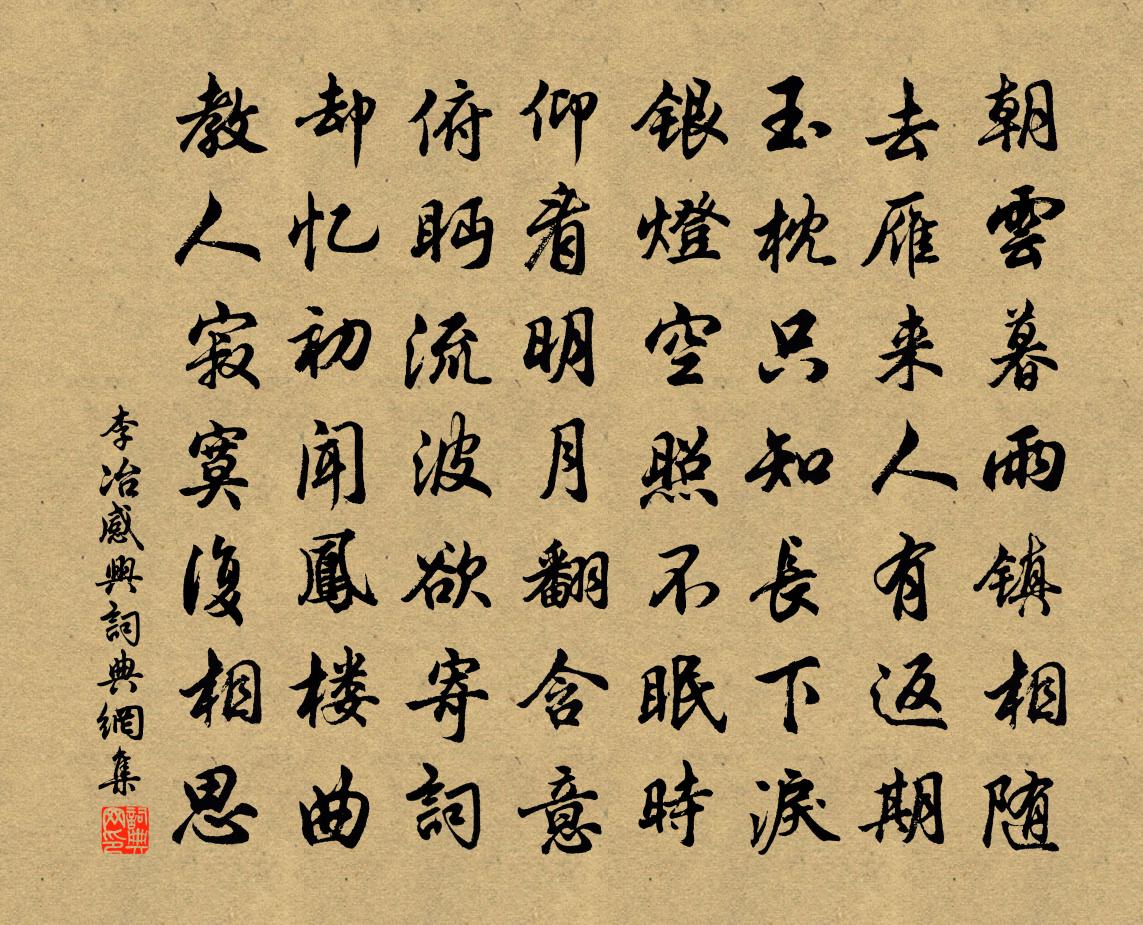 朝雲暮雨镇相随
去雁来人有返期
玉枕只知長下淚
銀燈空照不眠時
仰看明月翻含意
俯眄流波欲寄詞
却忆初聞鳳楼曲
教人寂寞復相思
李冶感興詞典網集
詞典网印